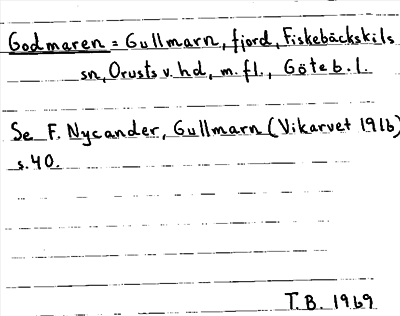 Godmaren = Gullmarn, fjord, Fiskebäckskils
sn, Orusts v. hd, m. fl., Göteb. l.
Se F. Nycander, Gullmarn (Vikarvet 1916)
s. 40.
T.B. 1969